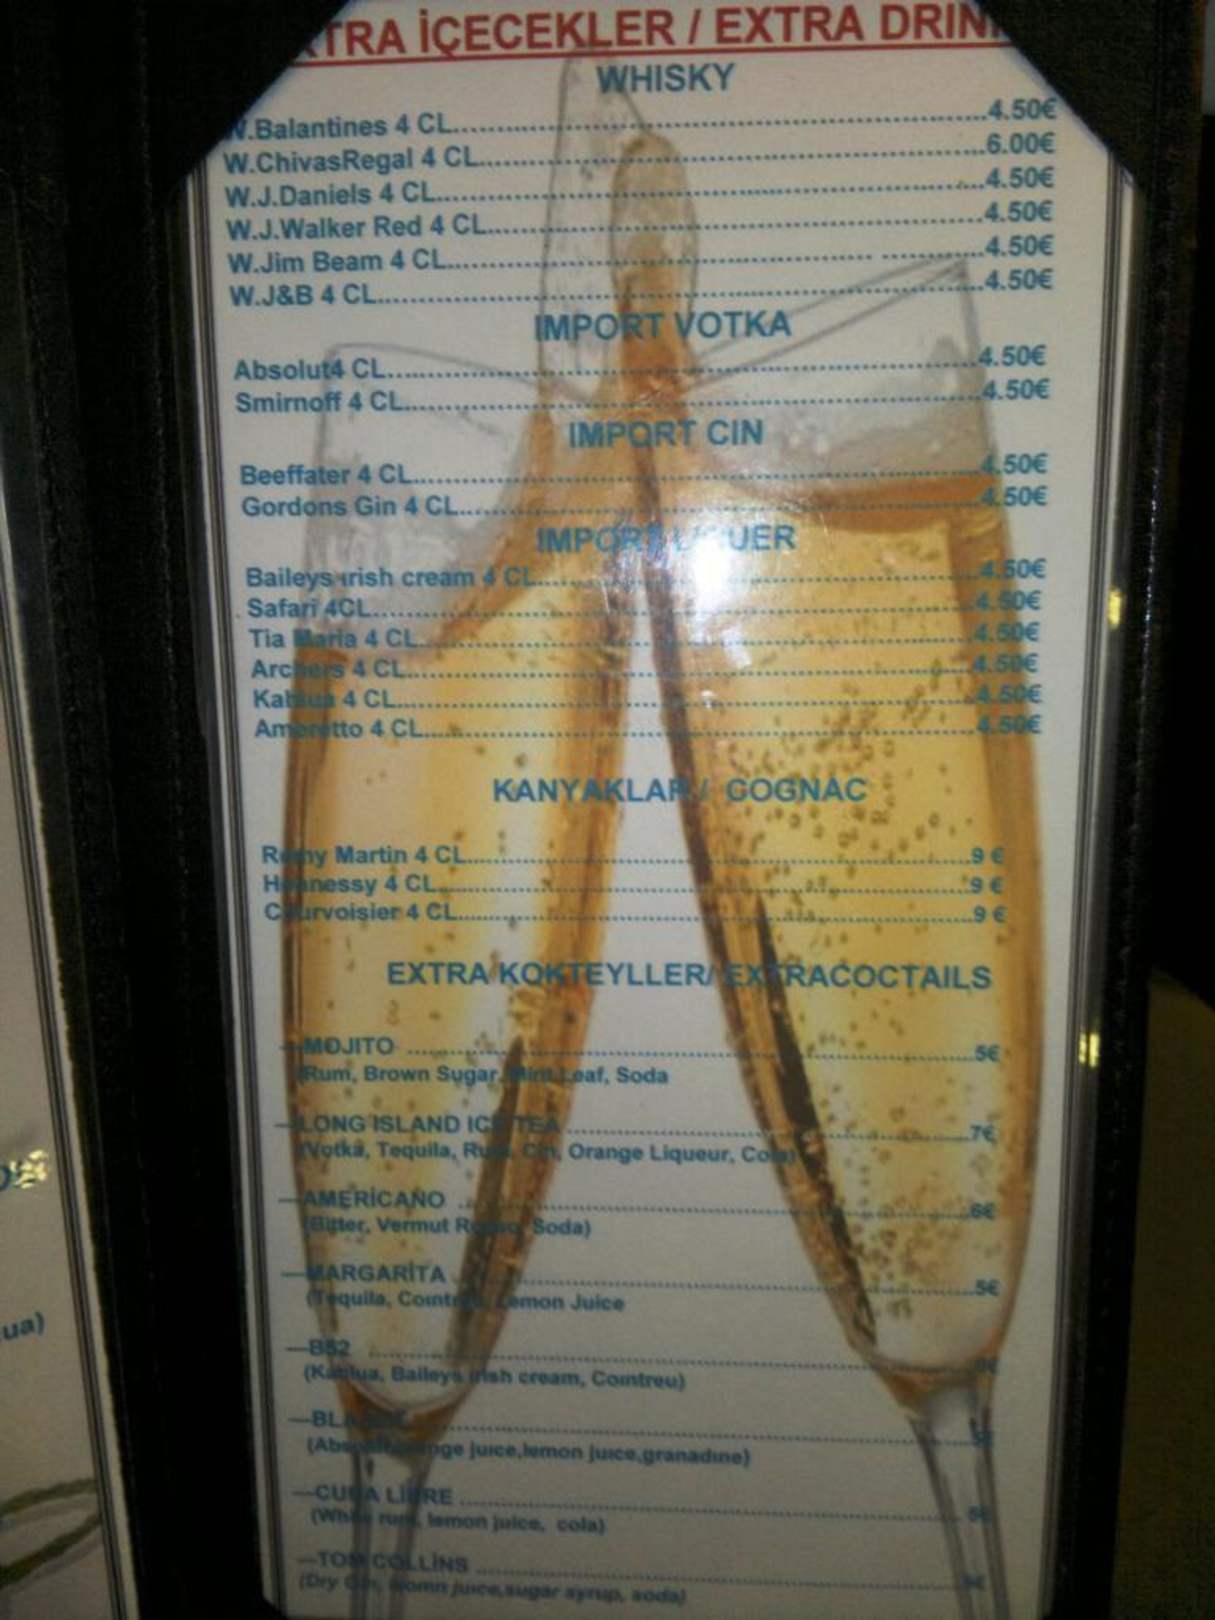 TRA İÇECEKLER / EXTRA DRIN
WHISKY
W.Balantines 4 CL..........4.50€
W.ChivasRegal 4 CL..........6.00€
W.J.Daniels 4 CL..........4.50€
W.J.Walker Red 4 CL..........4.50€
W.Jim Beam 4 CL..........4.50€
W.J&B 4 CL..........4.50€
IMPORT VOTKA
Absolut4 CL..........4.50€
Smirnoff 4 CL..........4.50€
IMPORT CIN
Beeffater 4 CL..........4.50€
Gordons Gin 4 CL..........4.50€
IMPORT UER
Baileys irish cream 4 CL..........4.50€
Safari 4CL..........4.50€
Tia Maria 4 CL..........4.50€
Archers 4 CL..........4.50€
Kahlua 4 CL..........4.50€
Amaretto 4 CL..........4.50€
KANYAKLAR / COGNAC
Remy Martin 4 CL..........9 €
Hennessy 4 CL..........9 €
Courvoisier 4 CL..........9 €
EXTRA KOKTEYLLER/ EXTRACOCTAILS
—MOJITO ..........5€
(Rum, Brown Sugar, Mint Leaf, Soda
—LONG ISLAND ICE TEA ..........7€
(Votka, Tequila, Rum, Cin, Orange Liqueur, Cola)
—AMERİCANO ..........6€
(Bitter, Vermut Rosso, Soda)
—MARGARİTA ..........5€
(Tequila, Cointreu, Lemon Juice
—B52 ..........
(Kahlua, Baileys irish cream, Cointreu)
juice,lemon juice,granadine)
—CUBA LİBRE ..........5€
(White rum, lemon juice, cola)
—TOM COLLİNS ..........
(Dry Gin, juice,sugar syrup, soda)
ua)